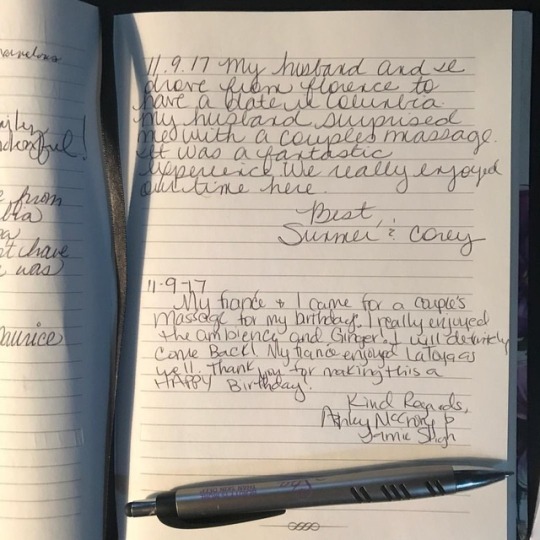 marvelous
wonderful!
from
t have
was
Maurice
11.9.17 My husband and I
drove from Florence to
have a date in Columbia.
My husband surprised
me with a couples massage.
It was a fantastic
experience. We really enjoyed
our time here.
Best,
Summer & Corey
11-9-17
My fiancé & I came for a couple's
massage for my birthday. I really enjoyed
the ambience and Ginger. I will definitely
come Back! My fiance enjoyed as
well. Thank you for making this a
HAPPY Birthday!
Kind Regards,
Ashley McCrory &
Jamie Singh